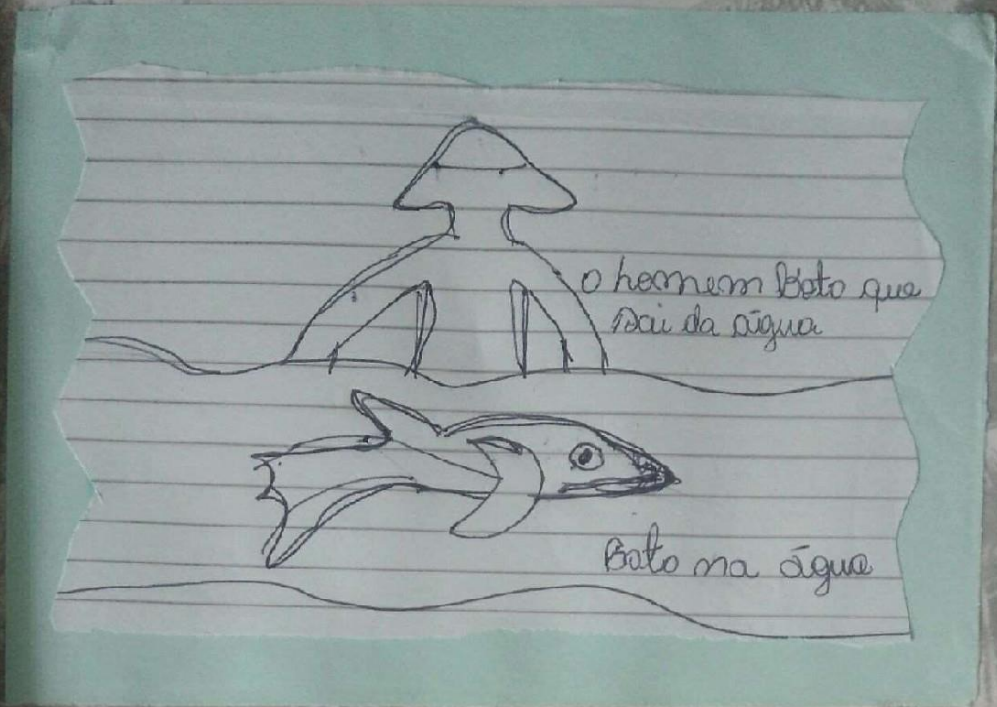 O homem Boto que
sai da água
Boto na água